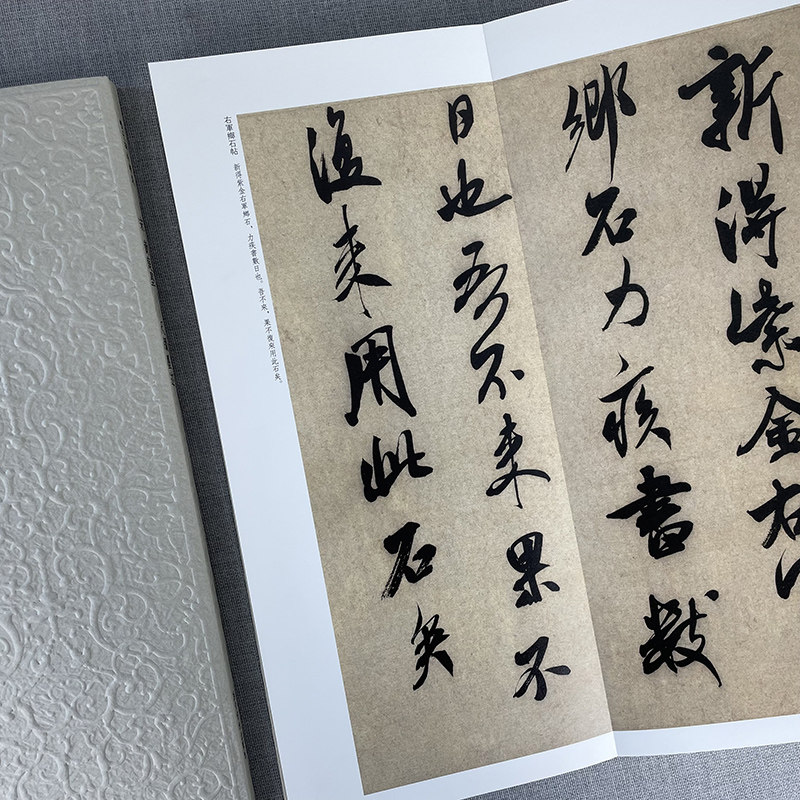 新得紫金右
鄉石力疾書數
日也吾不來果不
復來用此石矣
右軍鄉石帖　新得紫金右軍鄉石，力疾書數日也。吾不來，果不復來用此石矣。